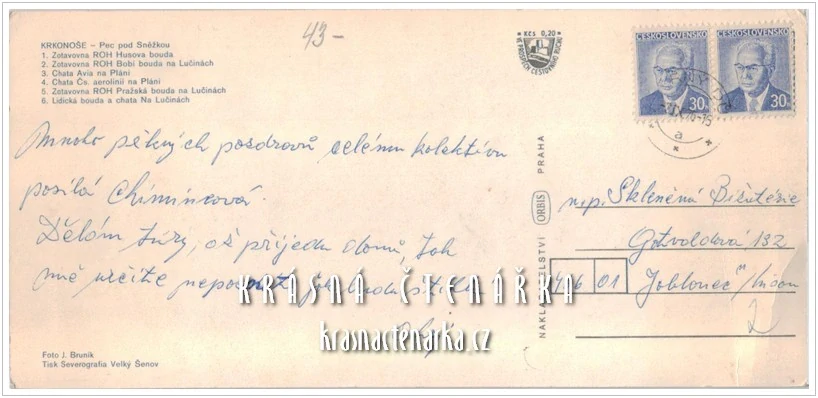 43-
KRKONOŠE – Pec pod Sněžkou
1. Zotavovna ROH Husova bouda
2. Zotavovna ROH Bobí bouda na Lučinách
3. Chata Avia na Pláni
4. Chata Čs. aerolinií na Pláni
5. Zotavovna ROH Pražská bouda na Lučinách
6. Lidická bouda a chata Na Lučinách
Kčs 0,20
VE PROSPĚCH CESTOVNÍHO RUCHU
ČESKOSLOVENSKO ČESKOSLOVENSKO
30h 30h
Mnoho pěkných pozdravů celému kolektivu
posílá Chimincová.
Dělám túry, až přijedu domů, tak
mně určitě nepoznáte jak budu štíhlá
NAKLADATELSTVÍ ORBIS PRAHA
n.p. Skleněná Bižutérie
Gotvaldová 132
466 01 Jablonec n/Nisou
2
KRÁSNÁ ČTENÁŘKA
krasnactenarka.cz
Foto J. Bruník
Tisk Severografia Velký Šenov